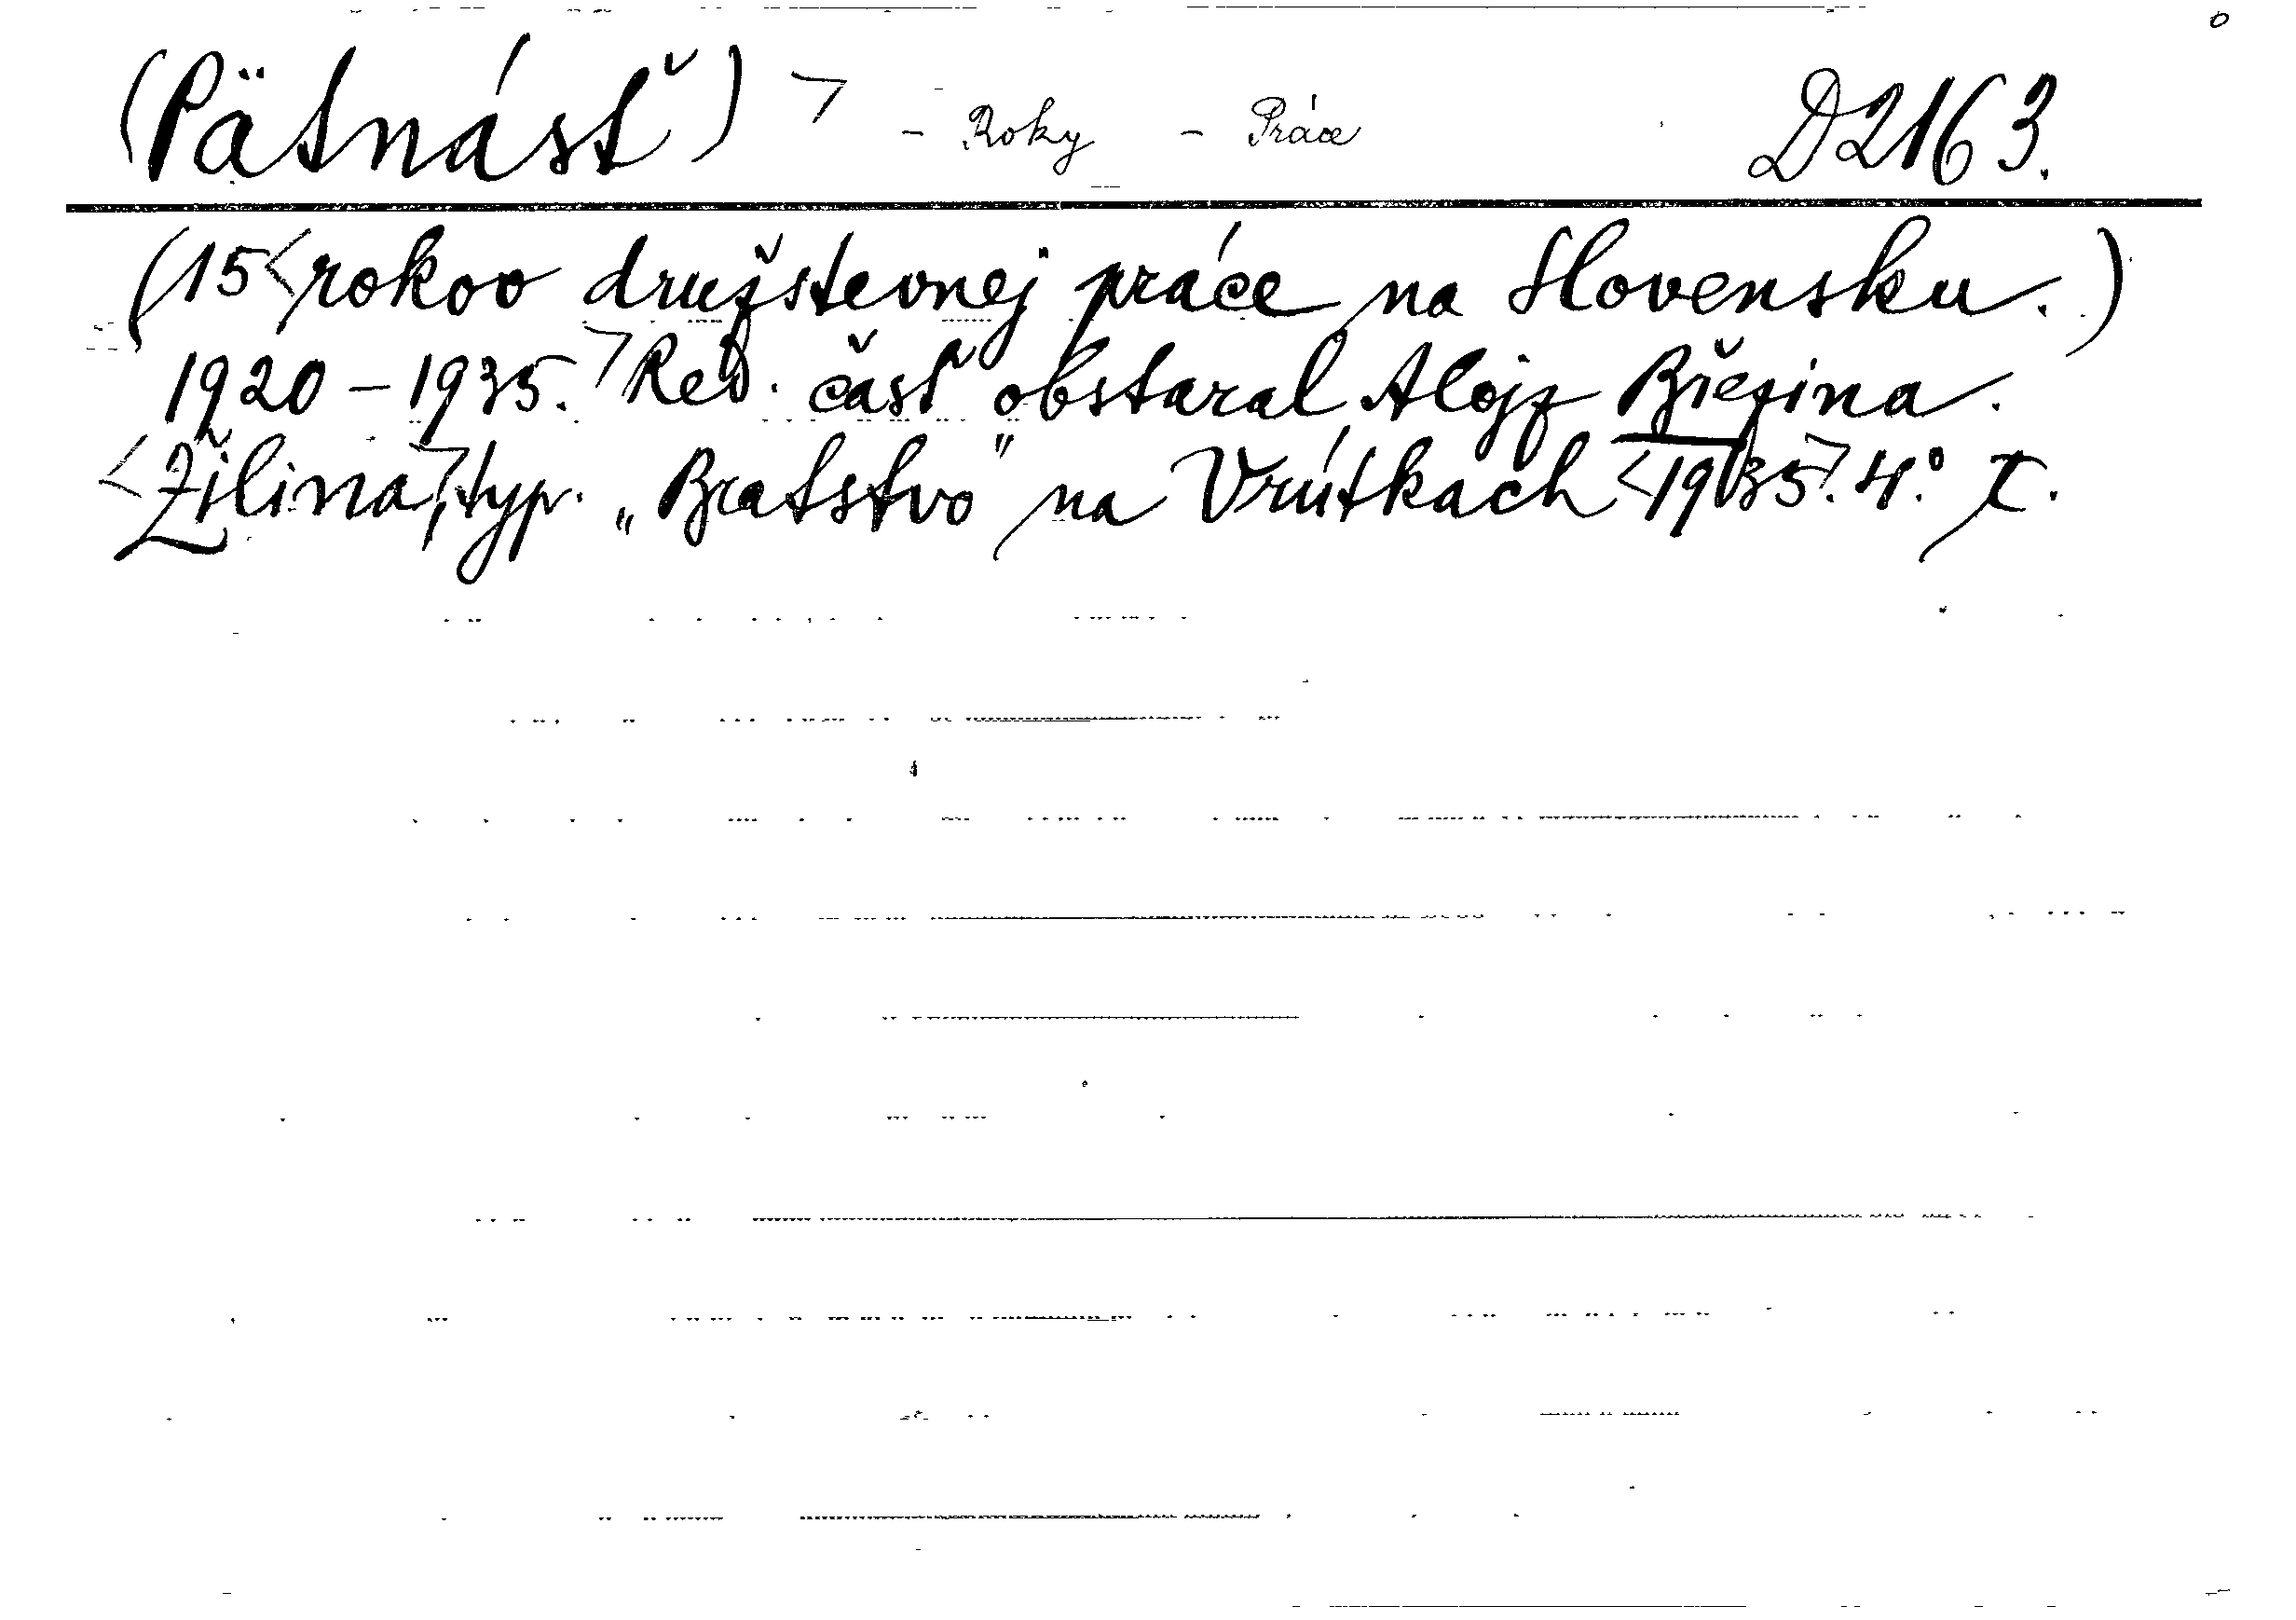 (Pätnásť) > - Roky - Práce D2163.
(15 < rokov družstevnej práce na Slovensku.)
1920 - 1935. > Red. časť obstaral Alojz Březina.
< Žilina, > typ. „Bratstvo" na Vrútkach < 1935. > 4.° T.